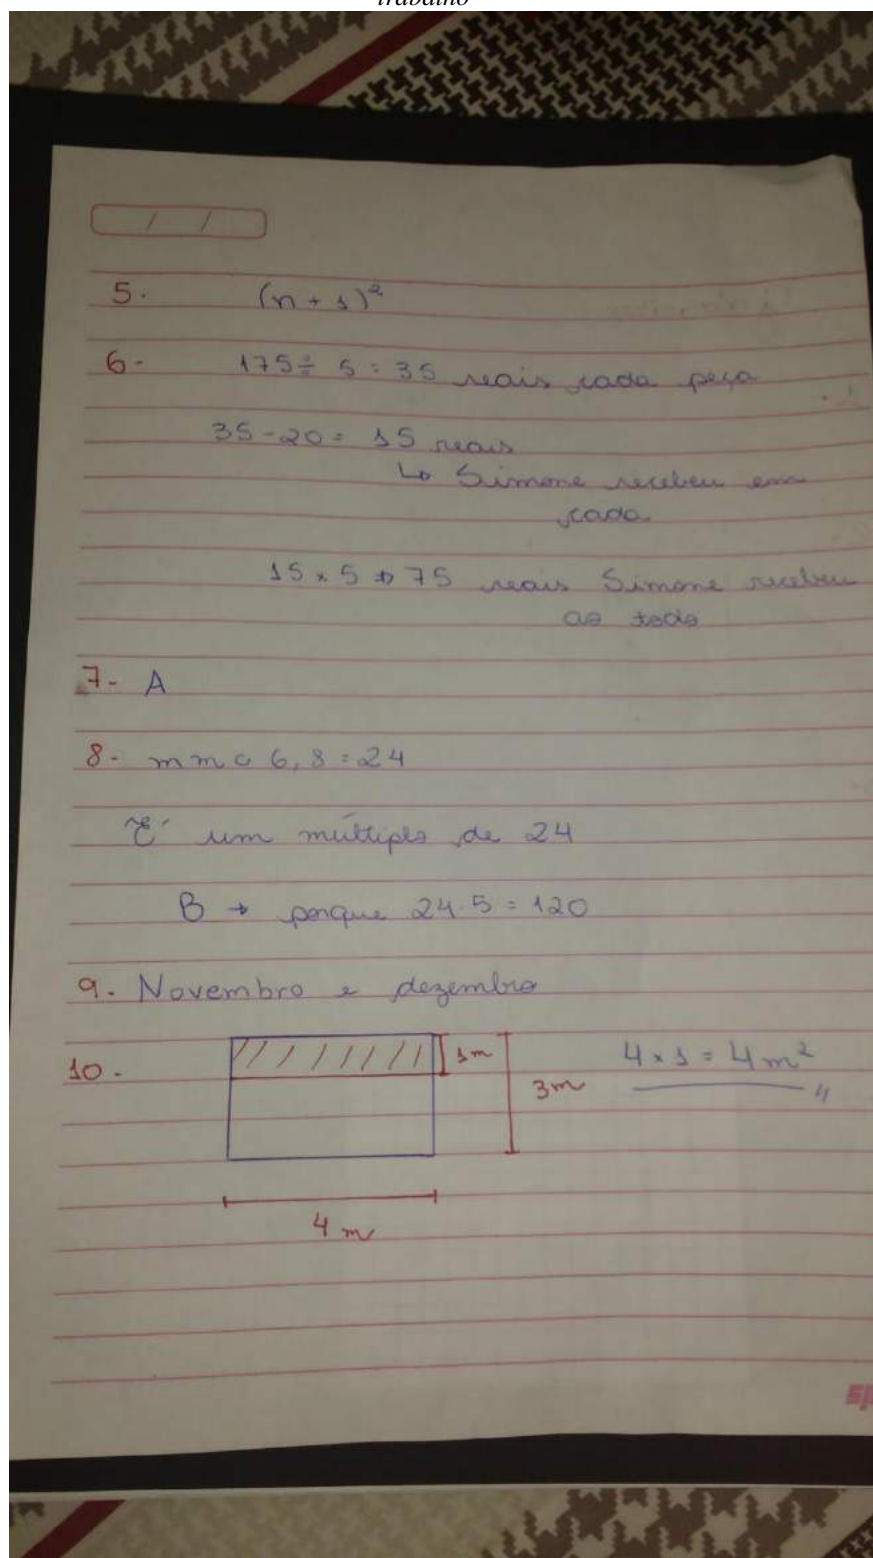 trabalho
/ /
5. (n + 1)²
6- 175 ÷ 5 = 35 reais cada peça
35 - 20 = 15 reais
↳ Simone recebeu em
cada
15 x 5 → 75 reais Simone recebeu
ao todo
7- A
8- mmc 6, 8 = 24
É um múltiplo de 24
B → porque 24.5 = 120
9. Novembro e dezembro
10- 1m 3m 4 x 1 = 4 m²
4 m